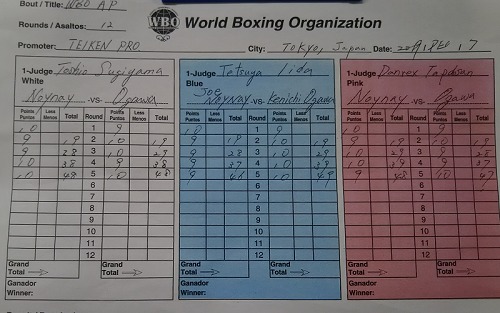 Bout / Title: WBO AP
Rounds / Asaltos: 12
WBO
World Boxing Organization
Promoter: TEIKEN PRO City: Tokyo, Japan Date:
1-Judge Toshio Sugiyama
White
Noynay -vs- Ogawa
Points Puntos Less Menos Total Round Points Puntos Less Menos Total
10 1 9
9 19 2 10 19
9 28 3 10 29
10 38 4 9 38
10 48 5 10 48
6
7
8
9
10
11
12
Grand Total Grand Total
Ganador
Winner:
1-Judge Tatsuya Iida
Blue
Joe
Noynay -vs- Kenichi Ogawa
Points Puntos Less Menos Total Round Points Puntos Less Menos Total
10 1 9
9 19 2 10 19
9 28 3 10 29
9 37 4 10
9 46 5 10 49
6
7
8
9
10
11
12
Grand Total Grand Total
Ganador
Winner:
1-Judge Danrex Tapdasan
Pink
Noynay -vs- Ogawa
Points Puntos Less Menos Total Round Points Puntos Less Menos Total
10 1 9
9 19 2 10 19
10 29 3 10 29
10 39 4 9 37
9 48 5 10 47
6
7
8
9
10
11
12
Grand Total Grand Total
Ganador
Winner: